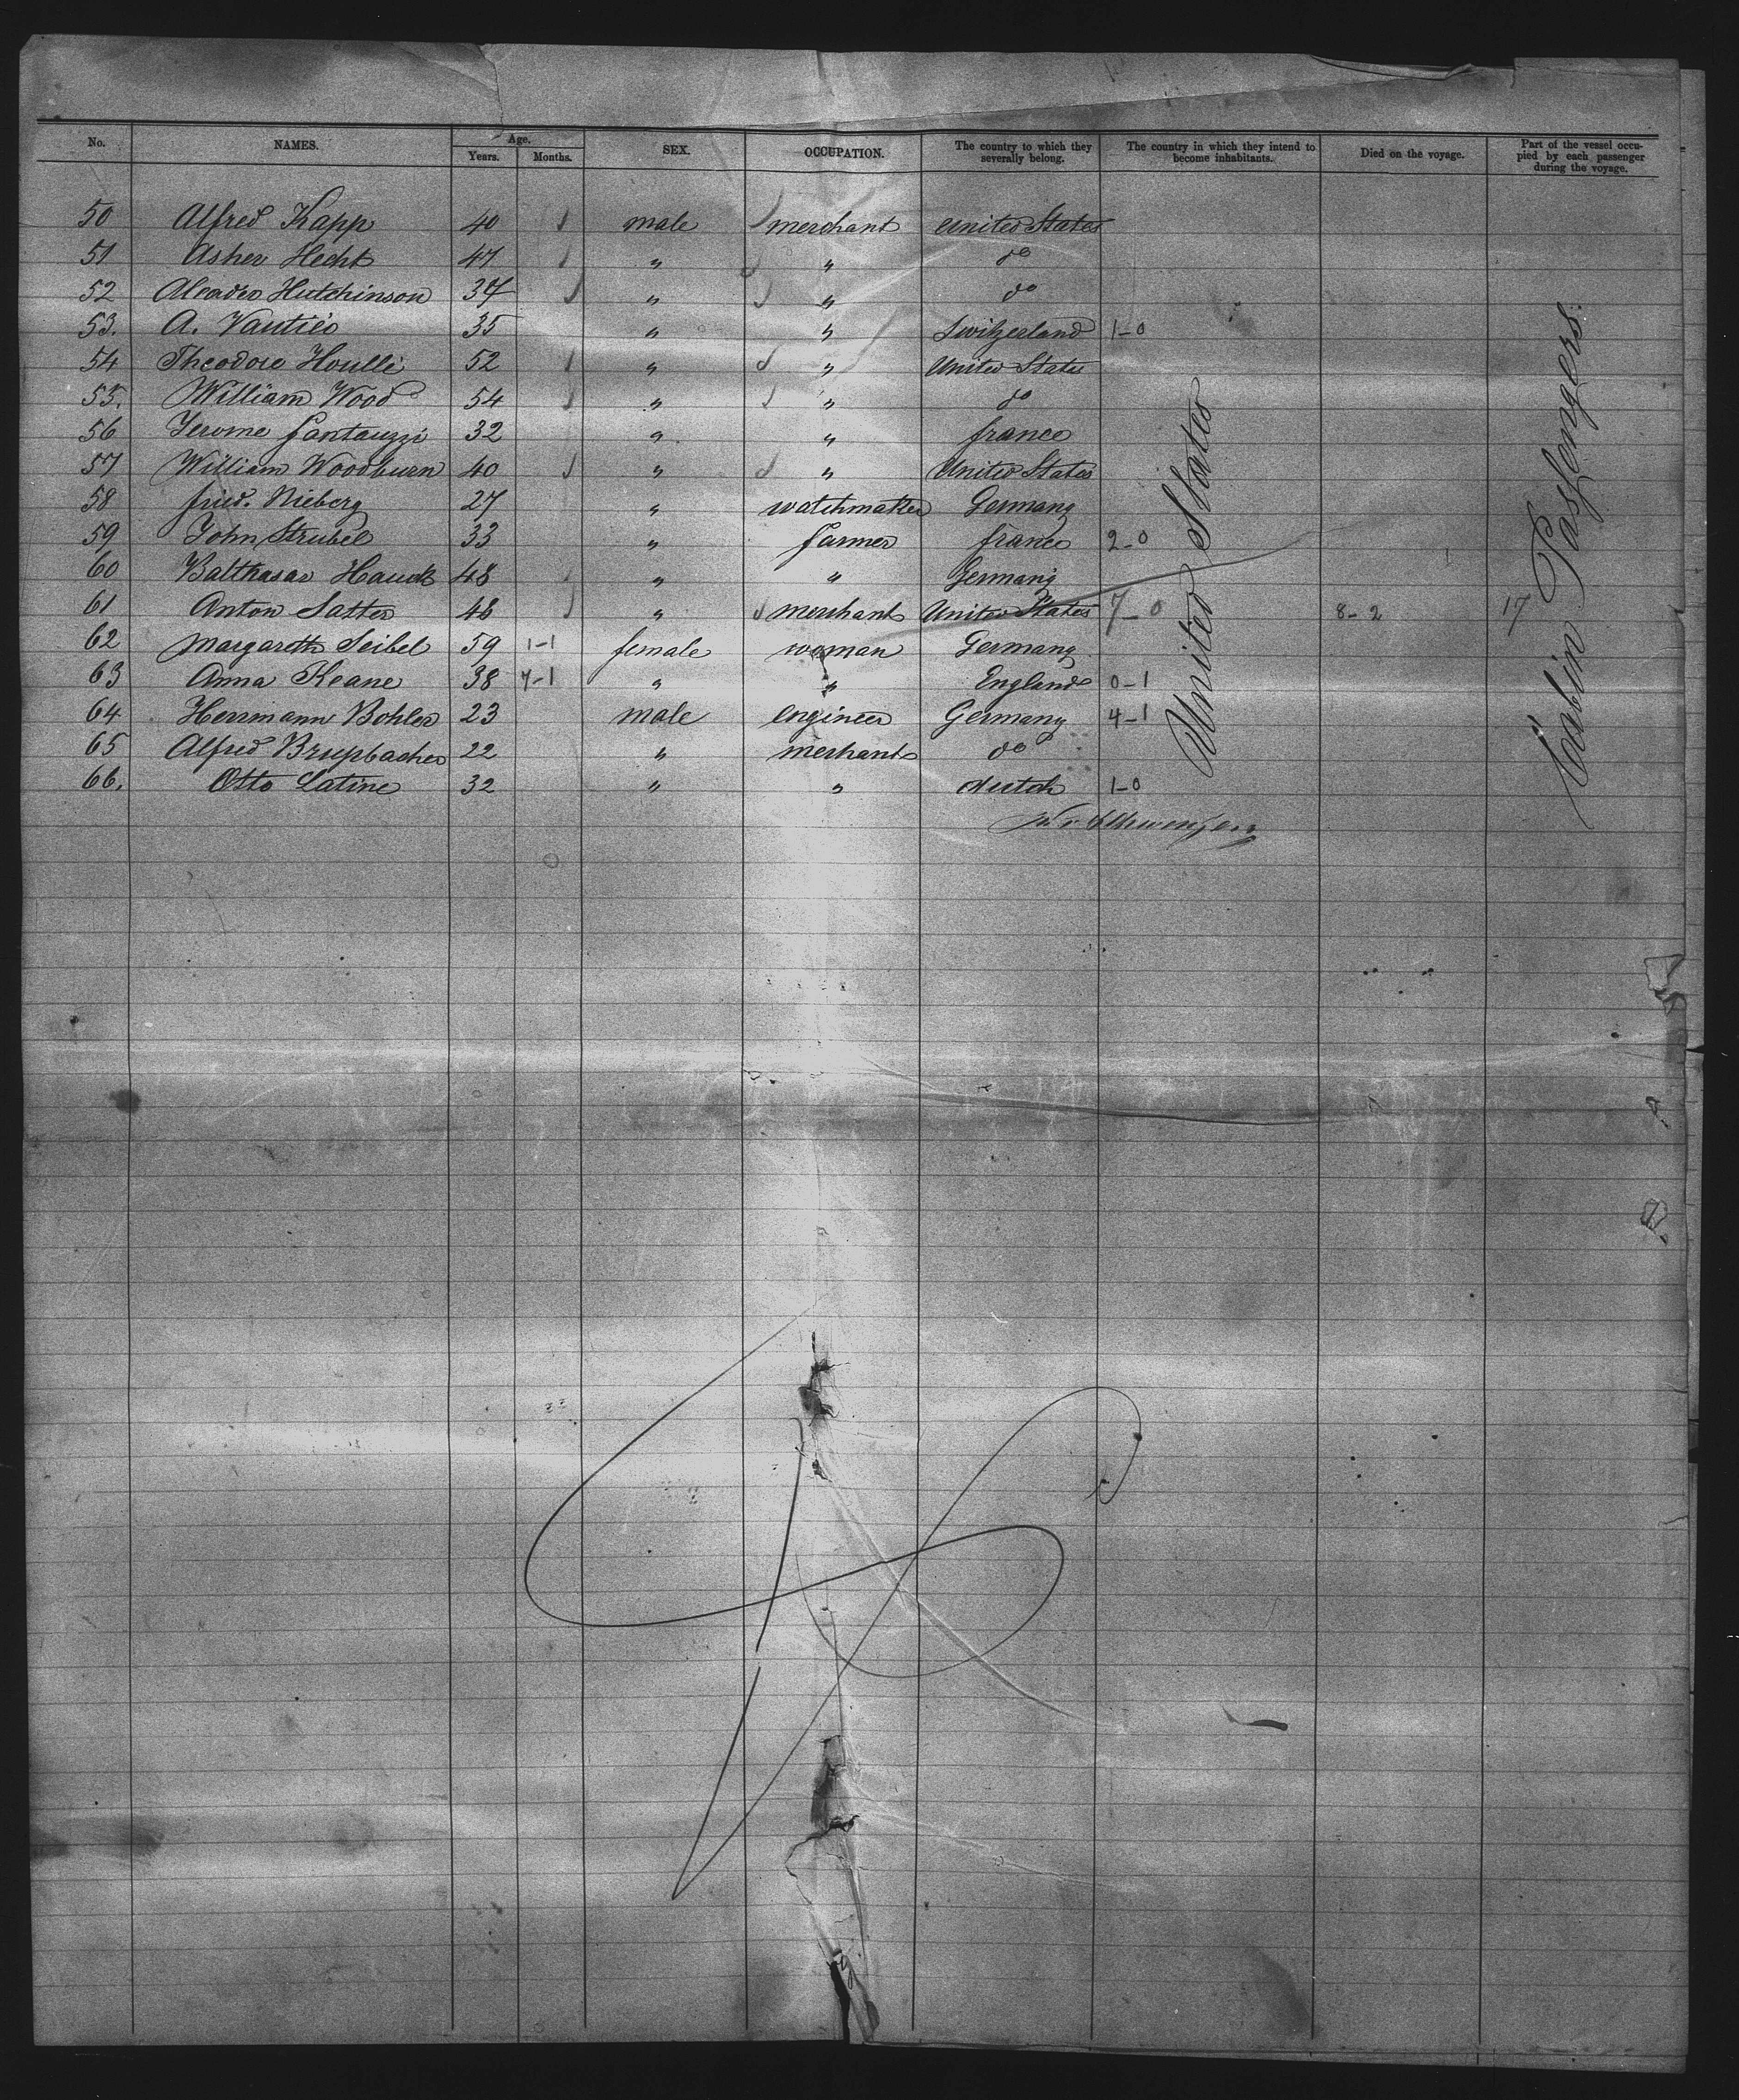 No. NAMES. Age. Years. Months. SEX. OCCUPATION. The country to which they severally belong. The country in which they intend to become inhabitants. Died on the voyage. Part of the vessel occupied by each passenger during the voyage.
50 Alfred Kapp 40 male merchant United States
51 Asher Hecht 47 " " do
52 Hutchinson 37 " " do
53. A. 35 " " Switzerland 1-0
54 Theodore Houlle 52 " " United States
55. William Wood 54 " " do
56 Jerome Fantauzzi 32 " " france
57 William Woodburn 40 " " United States
58 fried. Nieberg 27 " watchmaker Germany
59 John Strubel 33 " farmer france 2-0
60 Balthasar Hauck 48 " " Germany
61 Anton Satter 48 " merchant United States 7-0 8-2 17
62 Margareth Seibel 59 1-1 female woman Germany
63 Anna Keane 38 " " England 0-1
64 Herrmann Bohler 23 male engineer Germany 4-1
65 Alfred Brupbacher 22 " merchant do
66. Otto Latine 32 " " dutch 1-0
United States
Cabin Passengers.